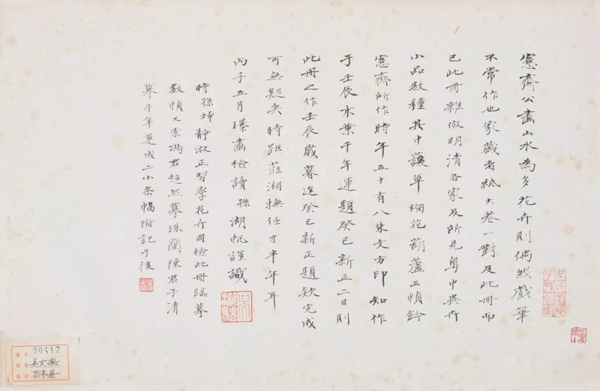 愙齋公畫山水為多花卉則偶然戲筆
不常作也家藏者柢大卷一對及此冊而
已此冊雜倣明清各家及所見粤中異卉
小品数種其中護草梔花葫蘆三幀鈐
愙齋所作時年五十有八朱文方印知作
于壬辰水葉千年運題癸巳新正二日則
此冊之作壬辰歲暮迄癸巳新正題欵完成
可無疑矣時距莅湘撫任才半年耳
丙子五月曝畫檢讀孫湖帆謹識
時孫婦靜淑正習學花卉因檢此冊臨摹
数幀又索馮君超然摹珠蘭陳君子清
摹千年運成二小条幅附記于後
00417